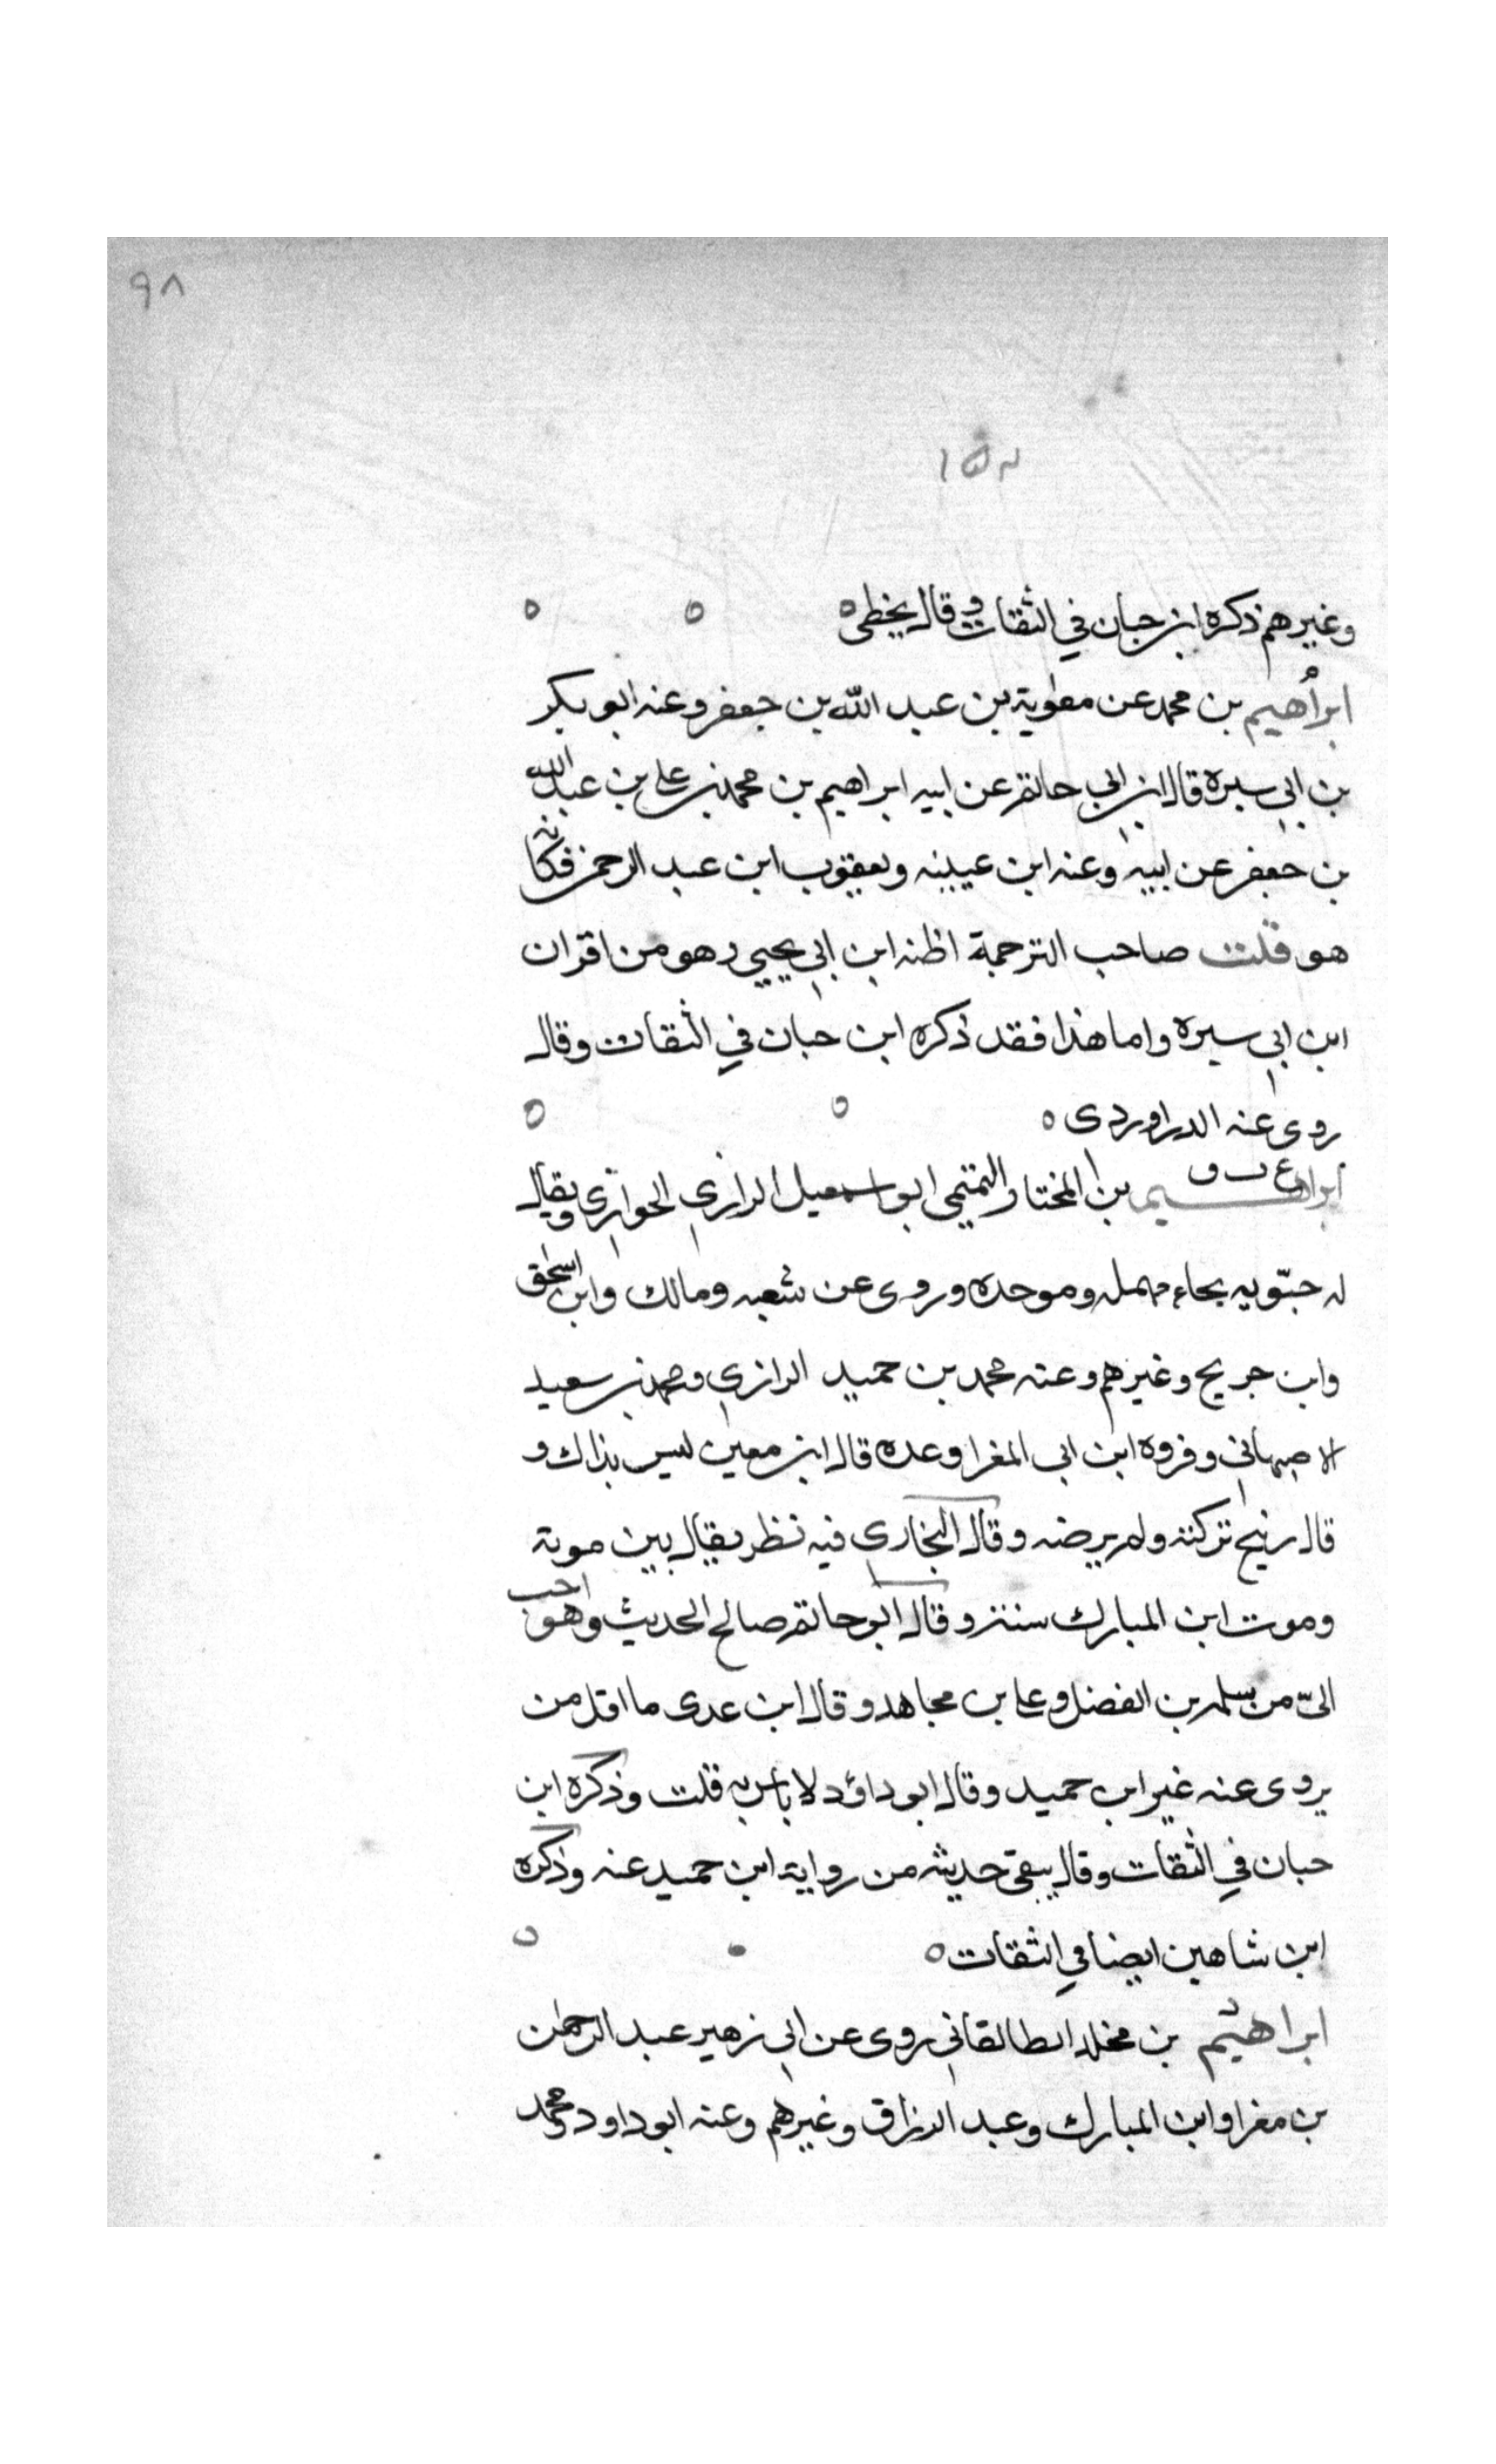 ٩٨
١٥٢
وغيرهم ذكره ابن حبان في الثقات وقال يخطى ه ه ه
ابراهيم بن محمد عن معوية بن عبد الله بن جعفر وعنه ابو بكر
بن ابي سبرة قال ابن ابي حاتم عن ابيه ابراهيم بن محمد بن علي بن عبد الله
بن جعفر عن ابيه وعنه ابن عيينه ويعقوب ابن عبد الرحمن فكانه
هو قلت صاحب الترجمة اظنه ابن ابي يحيي وهو من اقران
ابن ابي سبره واما هذا فقد ذكره ابن حبان في الثقات وقال
روى عنه الدراوردى ه ه ه
ابراهيم بن المختار التميمى ابو اسمعيل الرازي الخوارى ويقال
له حبّويه بحاء مهمله وموحده وروى عن شعبه ومالك وابن اسحق
وابن جريج وغيرهم وعنه محمد بن حميد الرازي ومحمد بن سعيد
الاصبهاني وفروه ابن ابي المغرا وعده قال ابن معين ليس بذاك و
قال زنيج تركته ولم يرضه وقال البخاري فيه نظر يقال بين موته
وموت ابن المبارك سنة وقال ابو حاتم صالح الحديث وهو احب
الىّ من سلمه بن الفضل وعلي بن مجاهد وقال ابن عدى ما اقل من
يروى عنه غير ابن حميد وقال ابو داؤد لا باس به قلت وذكره ابن
حبان في الثقات وقال يبقى حديثه من رواية ابن حميد عنه وذكره
ابن شاهين ايضا في الثقات ه ه
ابراهيم بن مخلد الطالقاني روى عن ابي زهير عبد الرحمن
بن مغرا وابن المبارك وعبد الرزاق وغيرهم وعنه ابو داود ومحمد